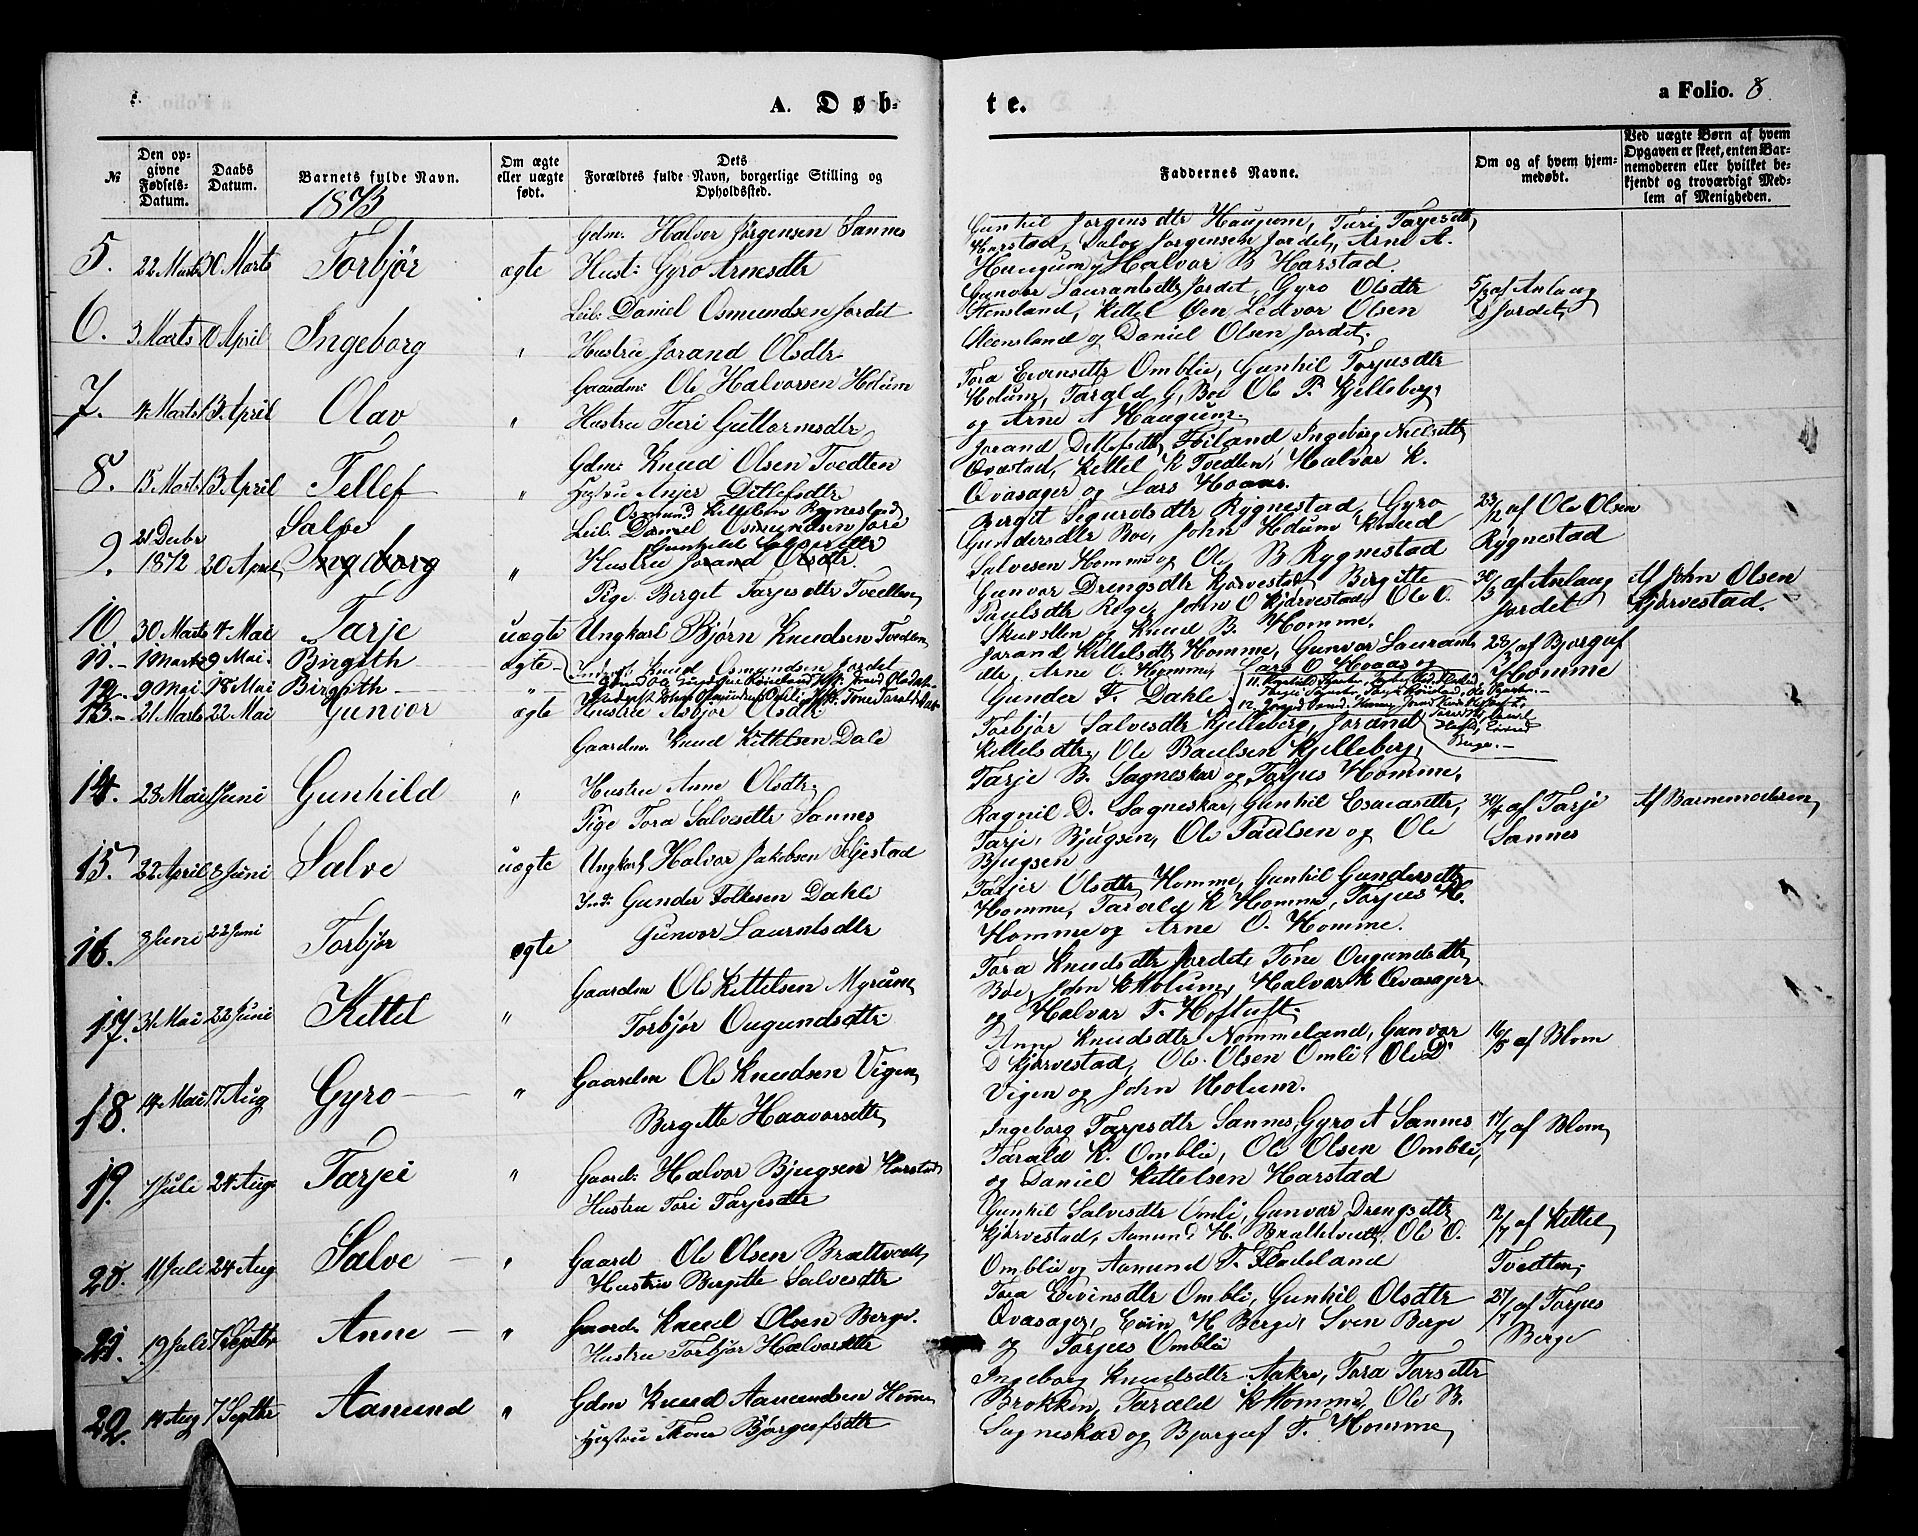 A. Døb-
te.
a Folio. 8.
№
Den opgivne Fødsels-Datum.
Daabs Datum.
Barnets fulde Navn.
Om ægte eller uægte født.
Dets Forældres fulde Navn, borgerlige Stilling og Opholdssted.
Faddernes Navne.
Om og af hvem hjemmedøbt.
Ved uægte Børn af hvem Opgaven er skeet, enten Barnemoderen eller hvilket bekjendt og troværdigt Medlem af Menigheden.
1873
5. 22 Marts 30 Marts Torbjør ægte
Gdm: Halvor Jørgensen Sannes
Hust: Gyro Arnesdtr
Gunhil Jorgensdtr Haugum, Turi Tarjesdtr
Harstad, Salve Jorgensen Jordet, Arne A.
Haugum, Halvor B Harstad.
6. 3 Marts 10 April Ingeborg "
Leil: Daniel Osmundsen Jordet
Hustru Jorand Olsdtr
Gunvor Laurantsdtr Jordet, Gyro Olsdtr
Stensland, Kittel Øen Ledvor Olsen
Steensland og Daniel Olsen Jordet.
5/3 af Anlaug
Jordet,
7. 4 Marts 13. April Olav "
Gaardm: Ole Halvorsen Holum
Hustru Turi Guttormsdtr
Tora Eivensdtr Omblie, Gunhil Torjusdtr
Holum, Tarald G. Boe Ole P. Kjelleberg,
og Arne A Haugum.
8. 15 Marts 13 April Tellef "
Gdm: Knud Olsen Tvedten
Hustru Anjer Ditlefsdtr
Jorand Detlefsdtr, Foiland Ingeborg Nielsdtr
Ovastad, Kittel K Tvedten, Halvor K.
Ovasager og Lars Hoaas.
9. 21 Decbr 1872 20 April Salve Ingeborg "
Osmund Kittelsen Rygnestad
Leil: Daniel Osmundsen Jore
Gunhild Salvesdtr
Hustru Jorand Olsdtr.
Bergit Sigurdsdtr Rygnestad, Gyro
Gundersdtr Boe, John Holum Knud
Salvesen Homme og Ole B Rygnestad
23/12 af Ole Olsen
Rygnestad
10. 30 Marts 4 Mai Tarje uægte
Pige Berget Tarjesdtr Tvedten
Ungkarl Bjørn Knudsen Tvedten
Gunvor Drengsdtr Kjørvestad, Birgitte
Paulsdtr Røge, John O Kjørvestad, Ole O.
og Knud B. Homme.
30/3 af Anlaug
Jordet
Af John Olsen
Kjørvestad.
11. – 1 Marts 9 Mai. Birgith – ægte –
Knud Osmundsen Jordet
12. – 9 Mai 18 Mai Birgith – " –
13. – 21 Marts 22 Mai Gunvor ægte
Hustru Asbjør Olsdtr
Jorand Kittelsdtr Homme, Gunvor Laurants
dtr, Arne O. Homme, Lars O Hoaas og
Gunder F. Dahle.
23/3 af Bjorguf
Homme
14. 23 Mai 1 Juni Gunhild "
Gaardm. Knud Kittelsen Dale
Hustru Anne Olsdtr,
Torbjør Salvesdtr Kjelleberg, Jorand
Kittelsdtr, Ole Paulsen Kjelleberg,
Tarje B. Sagneskar og Torjus Homme,
15. 22 April 8 Juni Salve uægte
Pige Tora Salvesdtr Sannes
Ungkarl Halvor Jakobsen
Ragnil D. Sagneskar, Gunhil Esaiasdtr,
Tarje, Bjugsen, Ole Paulsen og Ole
Bjugsen
30/4 af Tarje
Sannes
Af Barnemoderen,
16. 3 Juni 22 Juni Torbjør ægte
Ind: Gunder Folkesen Dahle
Gunvor Laurntsdtr
Tarjer Olsdtr Homme, Gunhil Gundersdtr
Homme, Tarald K Homme, Torjus H.
Homme og Arne O. Homme.
17. 31 Mai 22 Juni Kittel "
Gaardm Ole Kittelsen Myrum,
Torbjør Ougundsdtr
Tora Knudsdtr Jordet, Tone Ougundsdtr
Boe, John K Holum, Halvor K Ovasager
og Halvor T. Hoftuft.
18. 14 Mai 17 Aug Gyro – "
Gaardm Ole Knudsen Vigen,
Bergitte Haavorsdtr,
Anne Knudsdtr Nommeland, Gunvor
D Kjørvestad, Ole Olsen Omli, Ole D
Vigen og John Holum.
16/5 af Blom
19. 7 Juli 24 Aug. Tarjei "
Gaard: Halvor Bjugsen Harstad
Hustru Tori Tarjesdtr
Ingeborg Tarjesdtr Sannes, Gyro A Sannes
Tarald K. Omblie, Ole Olsen Omblie,
og Daniel Kittelsen Harstad
17/7 af Blom,
20. 11 Juli 24 Aug Salve – "
Gaard Ole Olsen Brættveit,
Hustru Bergitte Salvesdtr
Gunhil Salvesdtr Omli, Gunvor Drengsdtr
Kjørvestad, Aamund H. Brattelveit, Ole O.
Omblie og Aamund T. Fladeland
12/7 af Kittel
Tvedten,
21. 19 Juli 7 Septbr Anne – "
Gaard: Knud Olsen Berge.
Hustru Torbjør Halvorsdtr
Tora Eivinsdtr Ombli, Gunhil Olsdtr
Ovasager, Eivin H Berge, Sven Berge
og Torjus Omblie
27/7 af Torjus
Berge
22. 14 Aug 7 Septbr Aamund "
Gdm Knud Aamundsen Homme
Hustru Tone Bjørgufsdtr
Ingeborg Knudsdtr Aakre, Tora Torsdtr
Brokken, Tarald K Homme, Ole B.
Sagneskar og Bjorguf T. Homme,